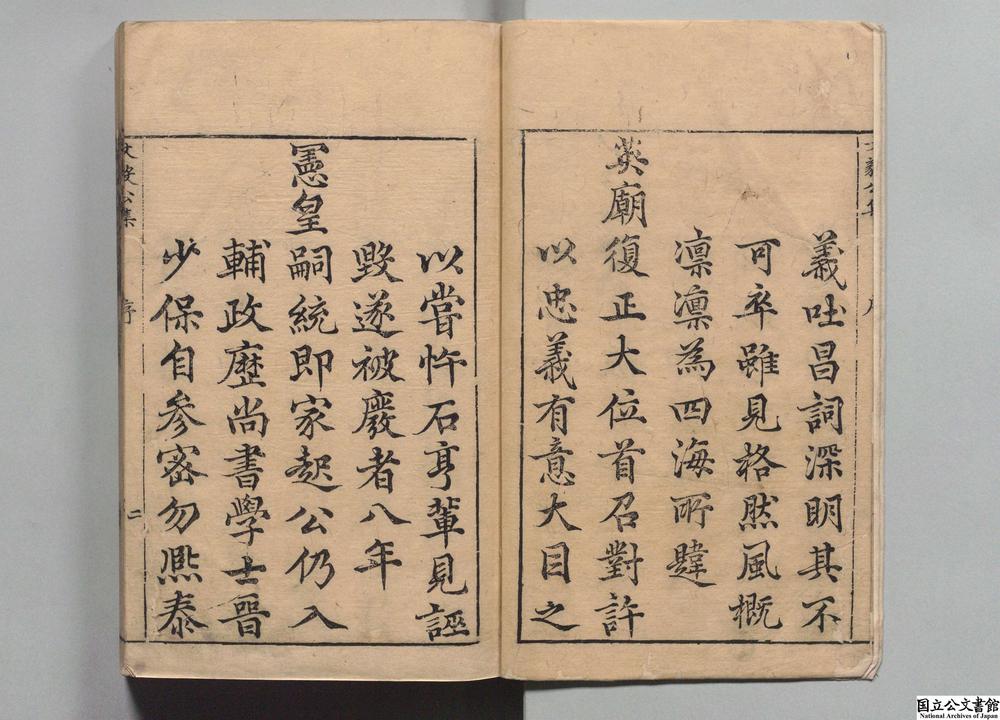 義吐昌詞深明其不
可卒雖見格然風概
凛凛為四海所韙
英廟復正大位首召對許
以忠義有意大目之
以嘗忤石亨輩見誣
毀遂被廢者八年
憲皇嗣統即家起公仍入
輔政歷尚書學士晉
少保自参密勿熈泰
文毅公集
序
二
国立公文書館
National Archives of Japan